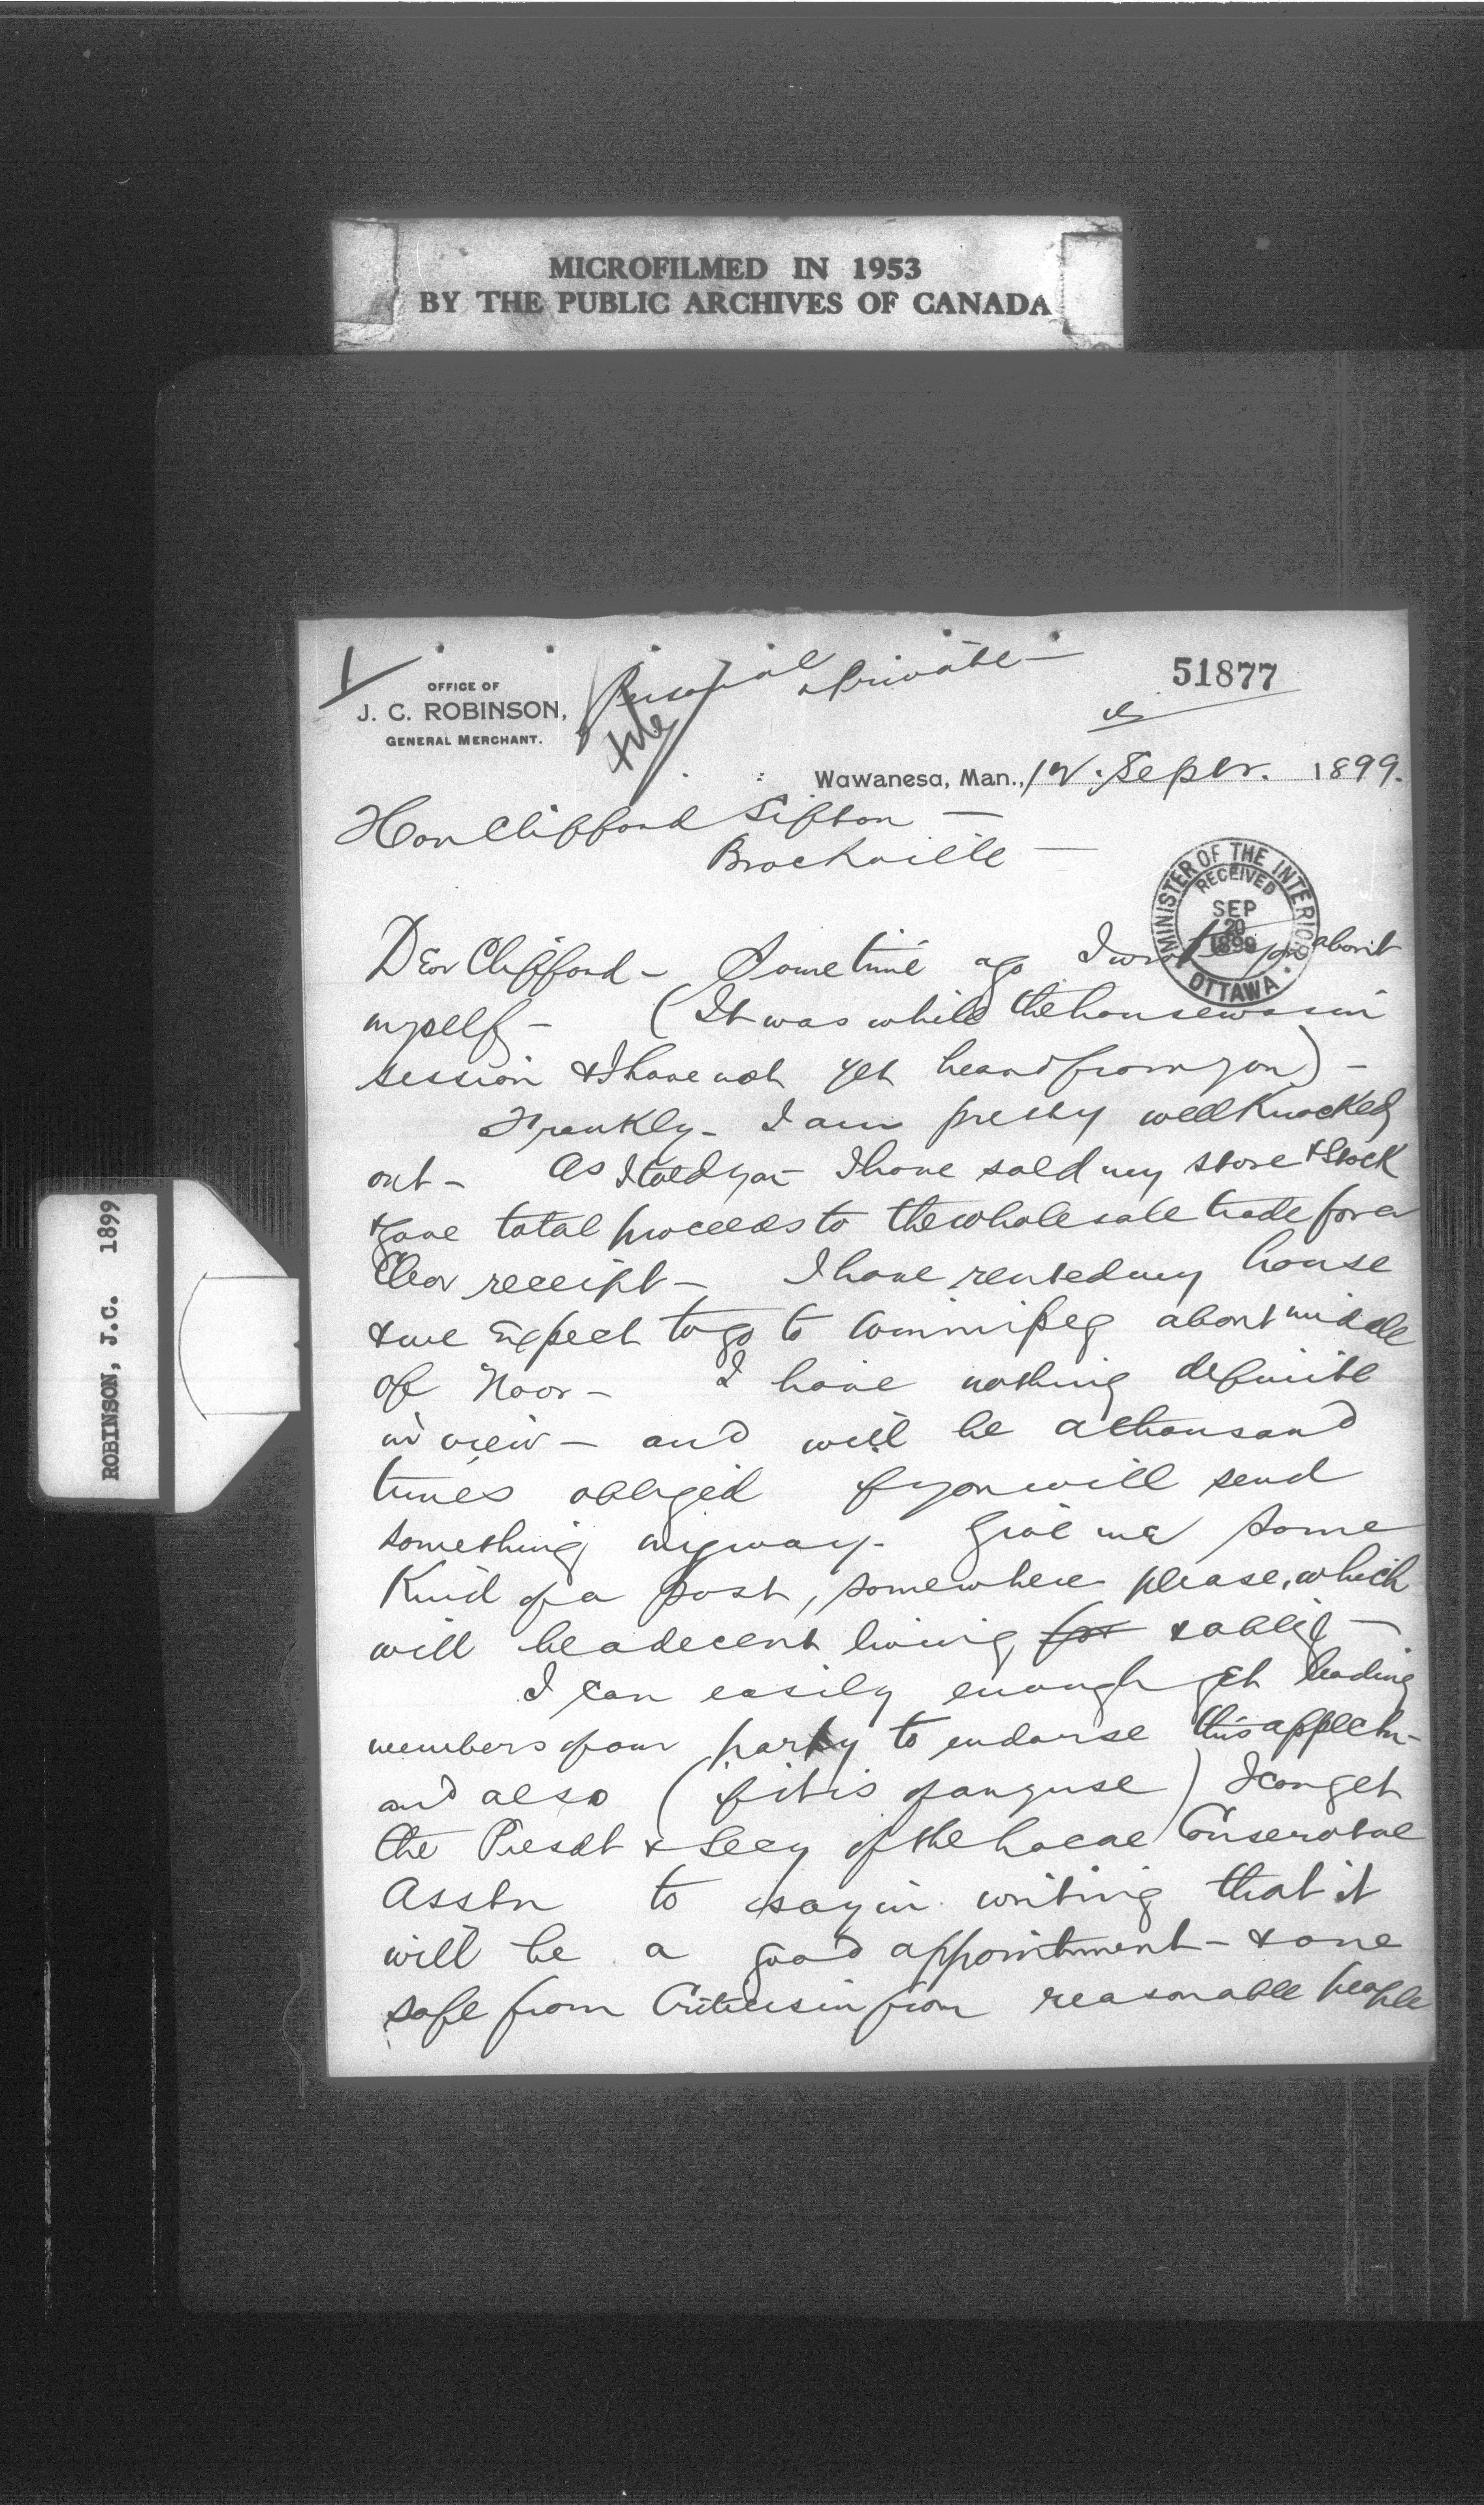 MICROFILMED IN 1953
BY THE PUBLIC ARCHIVES OF CANADA
ROBINSON, J.C. 1899
OFFICE OF
J. C. ROBINSON,
GENERAL MERCHANT.
Personal & Private
file
51877
Wawanesa, Man., 12 Septr. 1899.
Hon Clifford Sifton —
Brockville —
MINISTER OF THE INTERIOR
RECEIVED
SEP
20
1899
OTTAWA.
Dear Clifford – Some time ago I wrote you about
myself – (It was while the house was in
session & I have not yet heard from you) –
Frankly – I am pretty well knocked
out – As I told you I have sold my store & stock
& gave total proceeds to the wholesale trade for a
Clear receipt – I have rented my house
& we Expect to go to Winnipeg about middle
of Novr – I have nothing definite
in view – and will be a thousand
times obliged if you will send
something my way. Give me some
Kind of a post, somewhere please, which
will be a decent living for & oblige —
I can easily enough get leading
members of our party to endorse this applctn –
and also (if it is of any use) I can get
the Presdt & Secy of the Local Conservative
Asstn to say in writing that it
will be a good appointment – & one
safe from Criticism from reasonable people